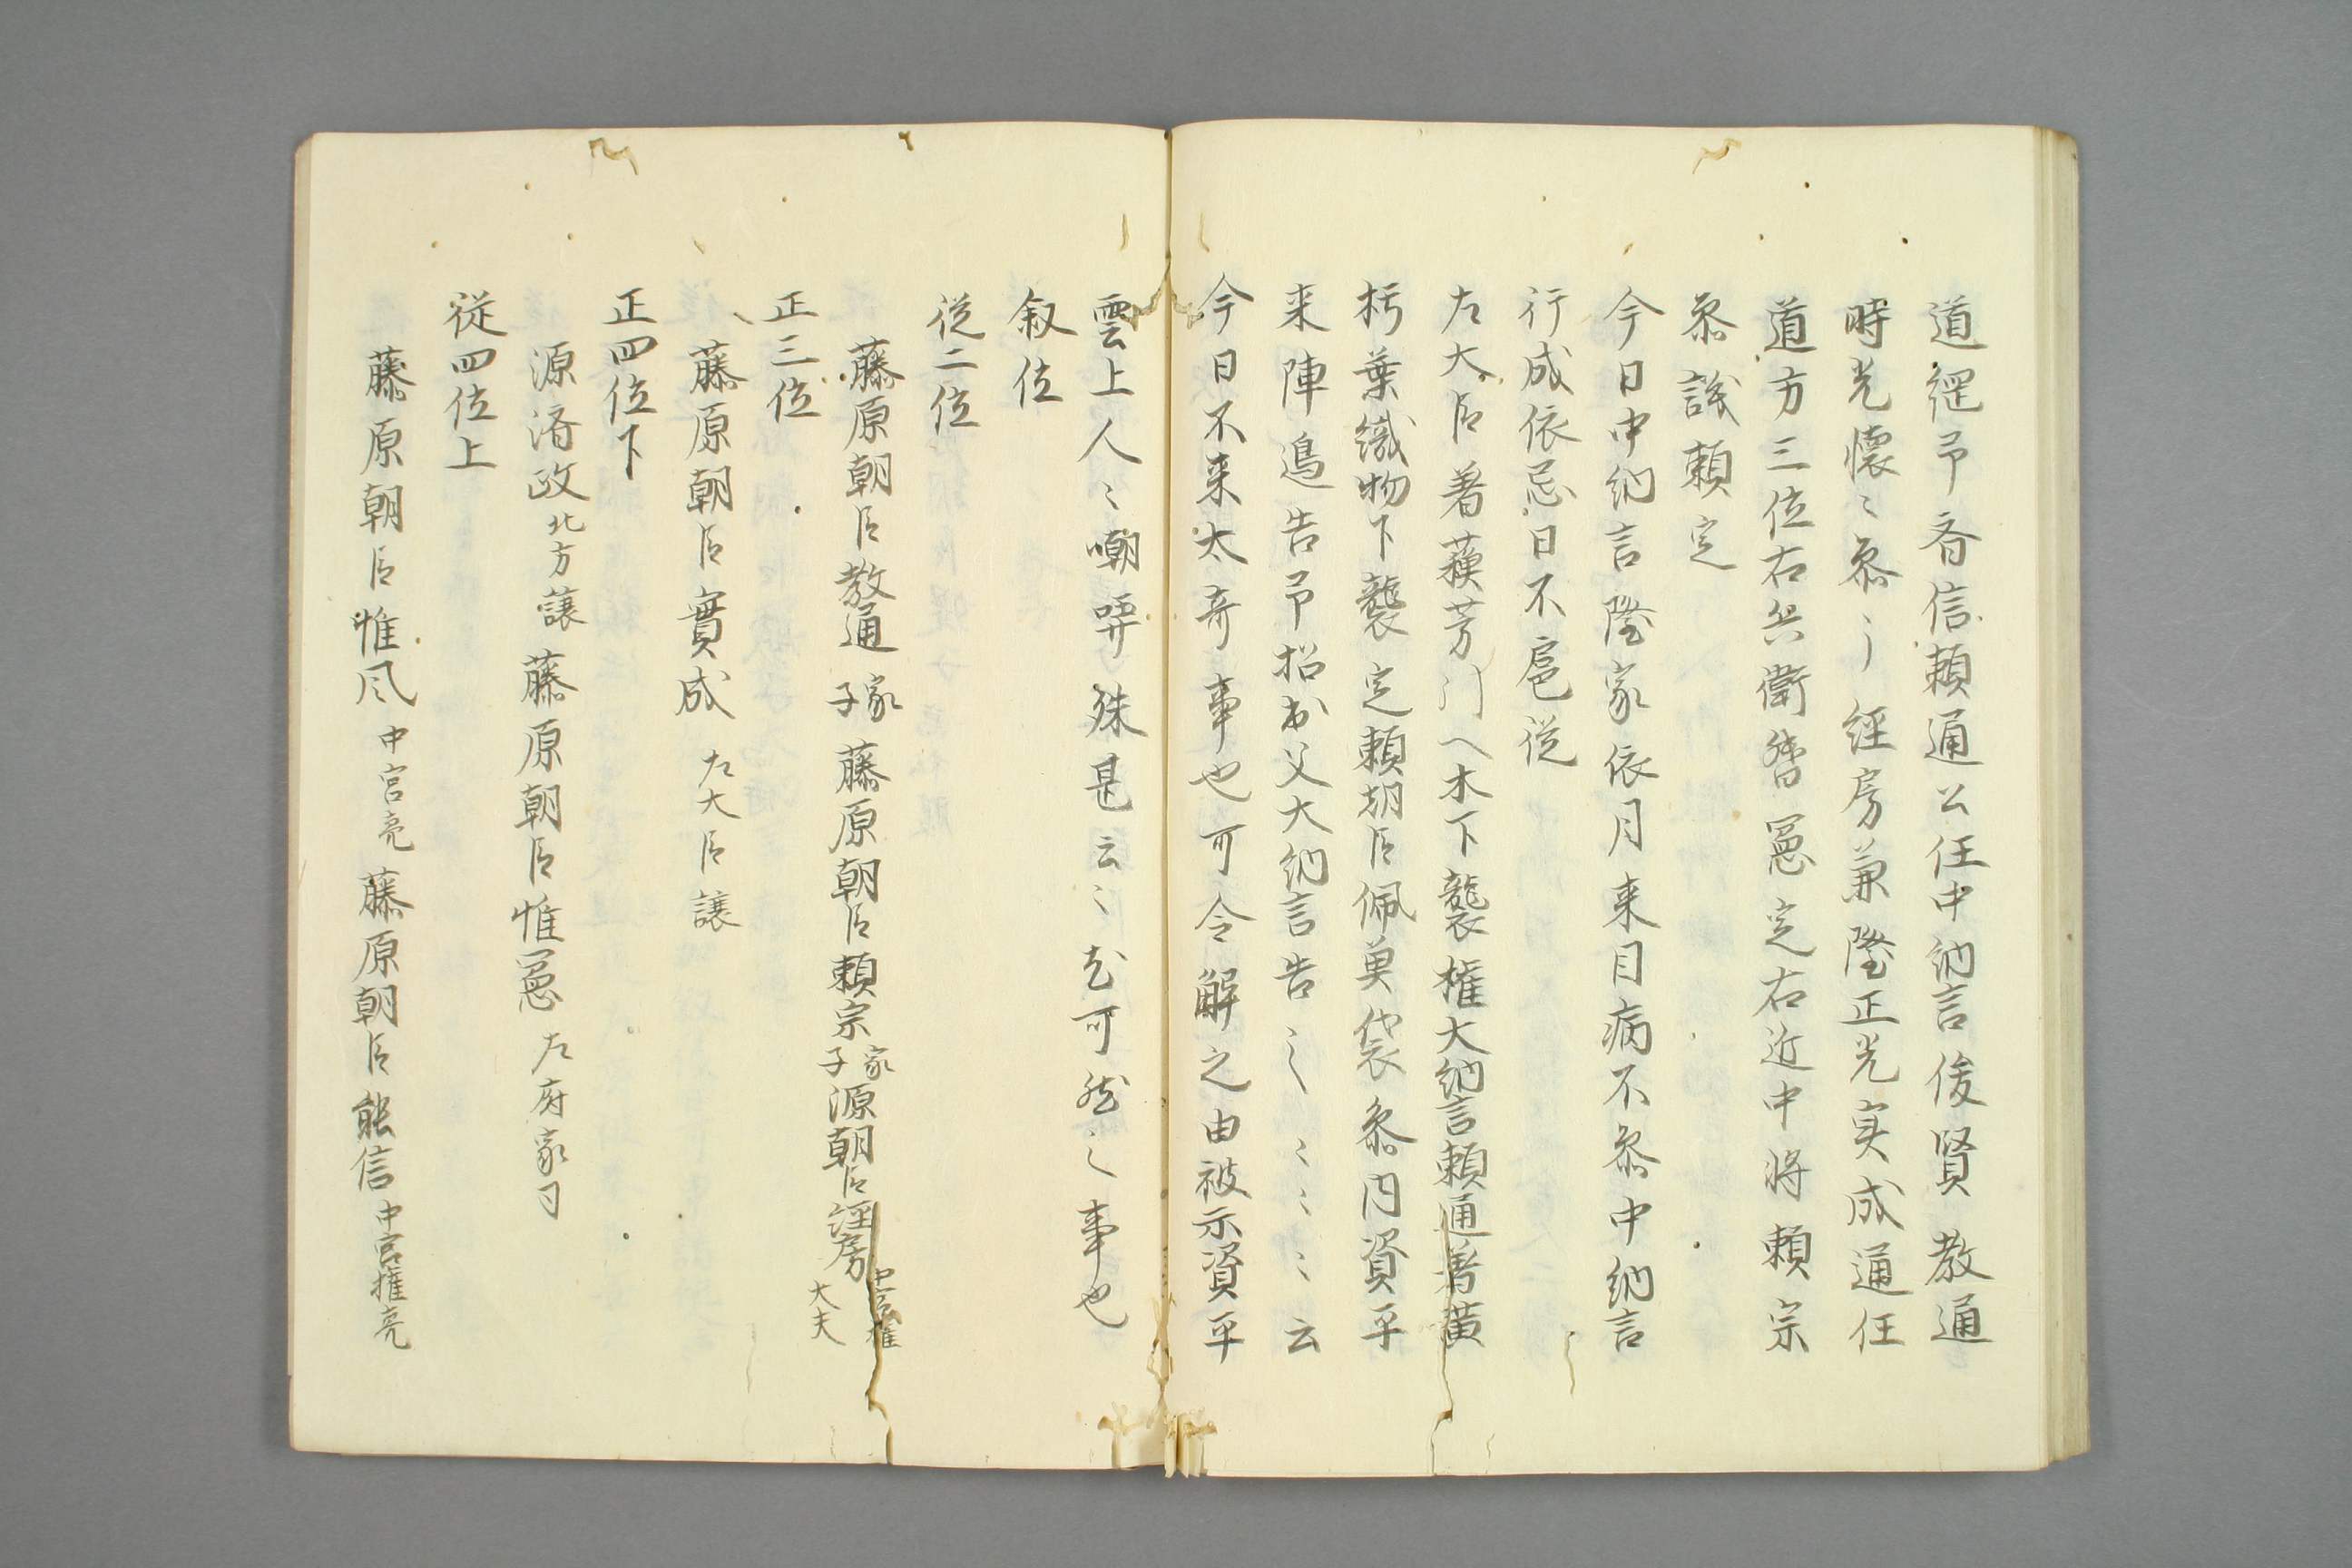 道綱予斉信頼通公任中納言俊賢教通
時光懐〻参〻経房兼隆正光実成通任
道方三位右兵衛督憲定右近中将頼宗
参議頼定
今日中納言隆家依月来目病不参中納言
行成依忌日不扈従
左大臣着蘓芳 木下襲権大納言頼通着黄
朽葉織物下襲定頼朝臣佩 袋参内資平
来陣 告予招出父大納言告 云
今日不来太奇事也可令解之由被示資平
雲上人〻嘲哢殊甚云〻尤可然之事也
叙位
従二位
藤原朝臣教通家子藤原朝臣頼宗家子源朝臣経房中宮権大夫
正三位
藤原朝臣實成左大臣譲
正四位下
源済政北方譲藤原朝臣惟憲左府家司
従四位上
藤原朝臣惟風中宮亮藤原朝臣能信中宮権亮